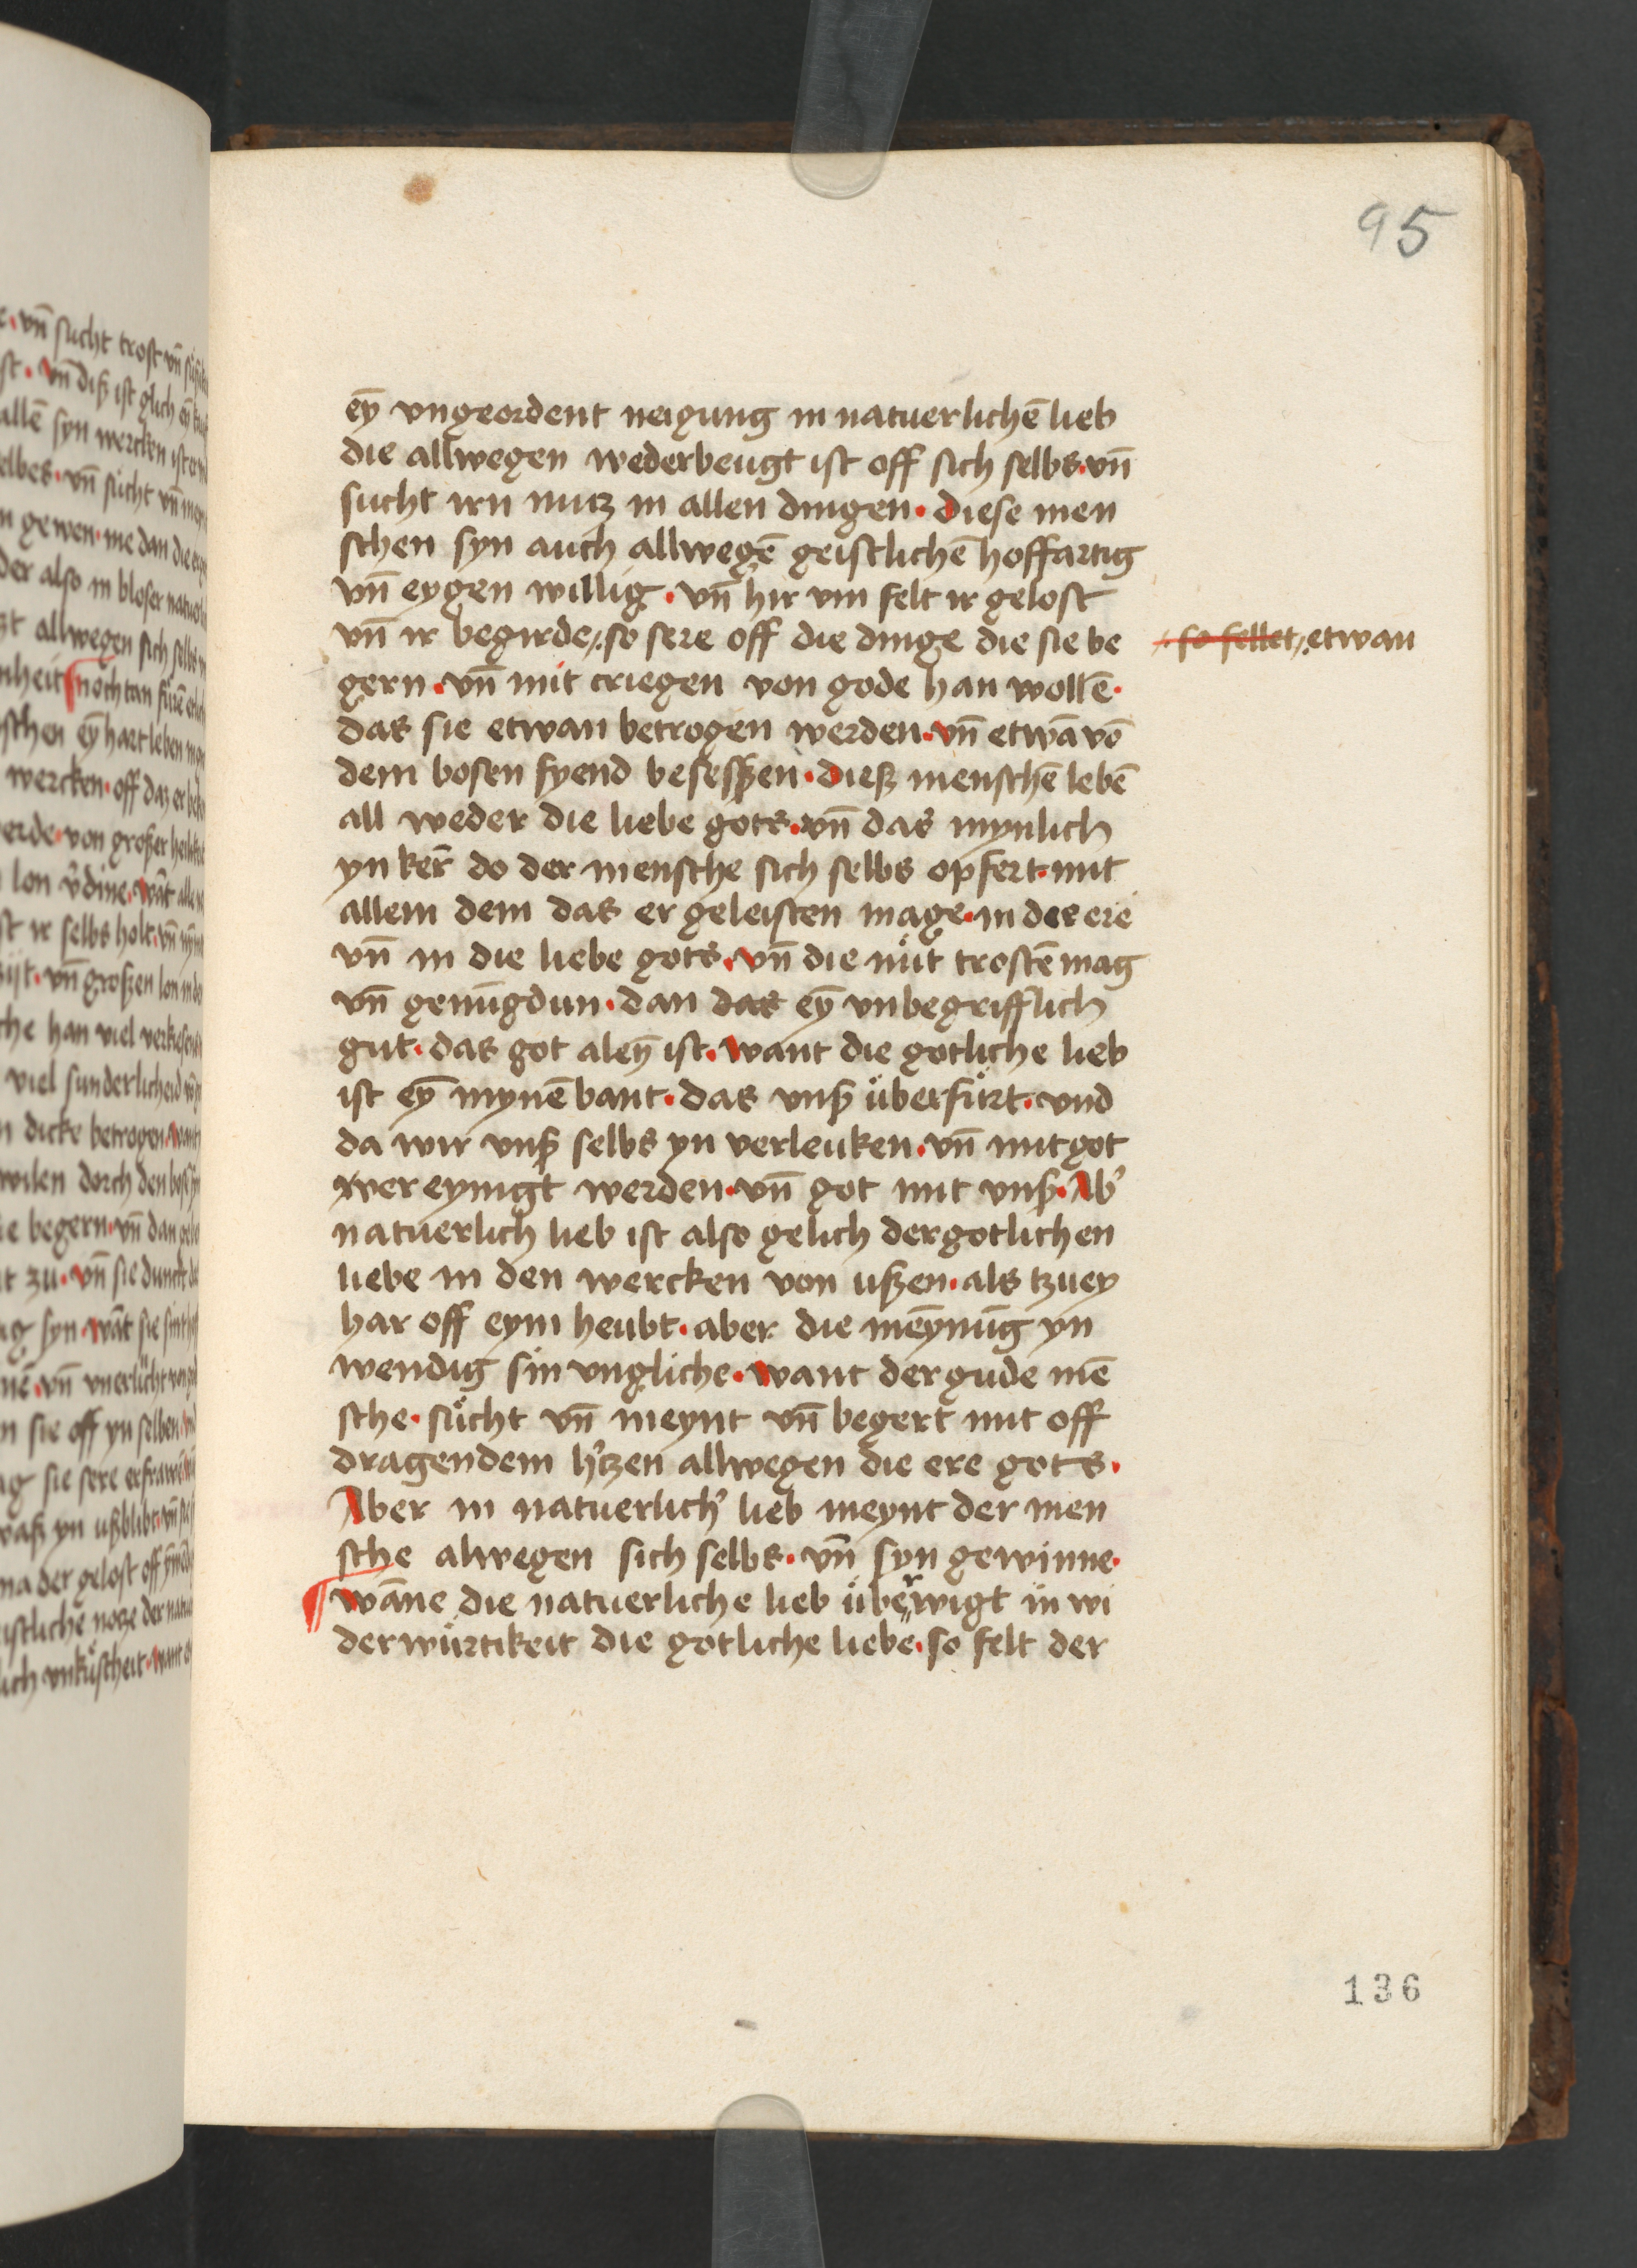 95
eȳ vngeordent neigung in natuerlichē lieb
die allwegen wederbeugt ist off sich selbs · vn̄
sucht irn nutz in allen dingen · diese men
schen syn auch allwegē geistlichē hoffartig
vn̄ eygen willig · vn̄ hir vm felt ir gelost
vn̄ ir begirde · so sere off die dinge die sie be
so fellet · etwan
gern · vn̄ mit criegen von gode han wollē ·
das sie etwan betrogen werden · vn̄ etwā vō
dem bosen fyend besessßen · dieß menschē lebē
all weder die liebe gots · vn̄ das mynlich
yn ker̄ do der mensche sich selbs opfert · mit
allem dem das er geleisten mage · in der ere
vn̄ in die liebe gots · vn̄ die nuͤt trostē mag
vn̄ genūgdun · dan das eȳ vnbegrifflich
gut · das got aleȳ ist · want die gotliche lieb
ist eȳ mynē bant · das vnß uͤberfuͤrt · vnd
da wir vnß selbs yn verleuken · vn̄ mit got
ver eynigt werden · vn̄ got mit vnß · Ab'
natuerlich lieb ist also gelich der gotlichen
liebe in den wercken von ußen · als tzuey
har off eym heubt · aber die mēynūg yn
wendig sin vngliche · want der gude mē
sche · suͤcht vn̄ meynt vn̄ begert mit off
dragendem h'tzen allwegen die ere gots ·
Aber in natuerlich' lieb meynt der men
sche alwegen sich selbs · vn̄ syn gewinne ·
¶ wāne die natuerliche lieb uͤberwigt in wi
derwuͤrtikeit die gotliche liebe · so felt der
136